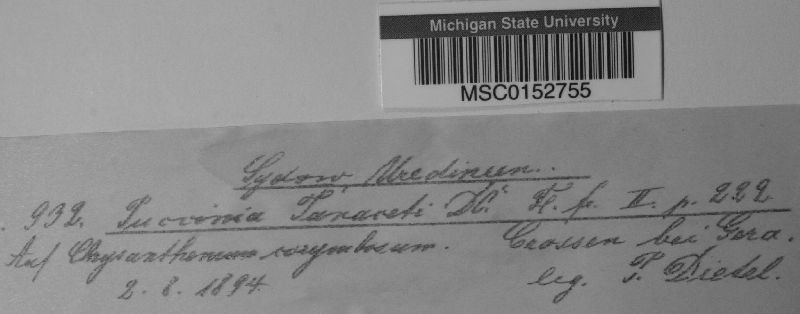 Michigan State University
MSC0152755
Sydow, Uredineen.
932. Puccinia Tanaceti DC. Fl. fr. II. p. 222
Auf Chrysanthemum corymbosum. Crossen bei Gera.
2. 8. 1894. leg. P. Dietel.